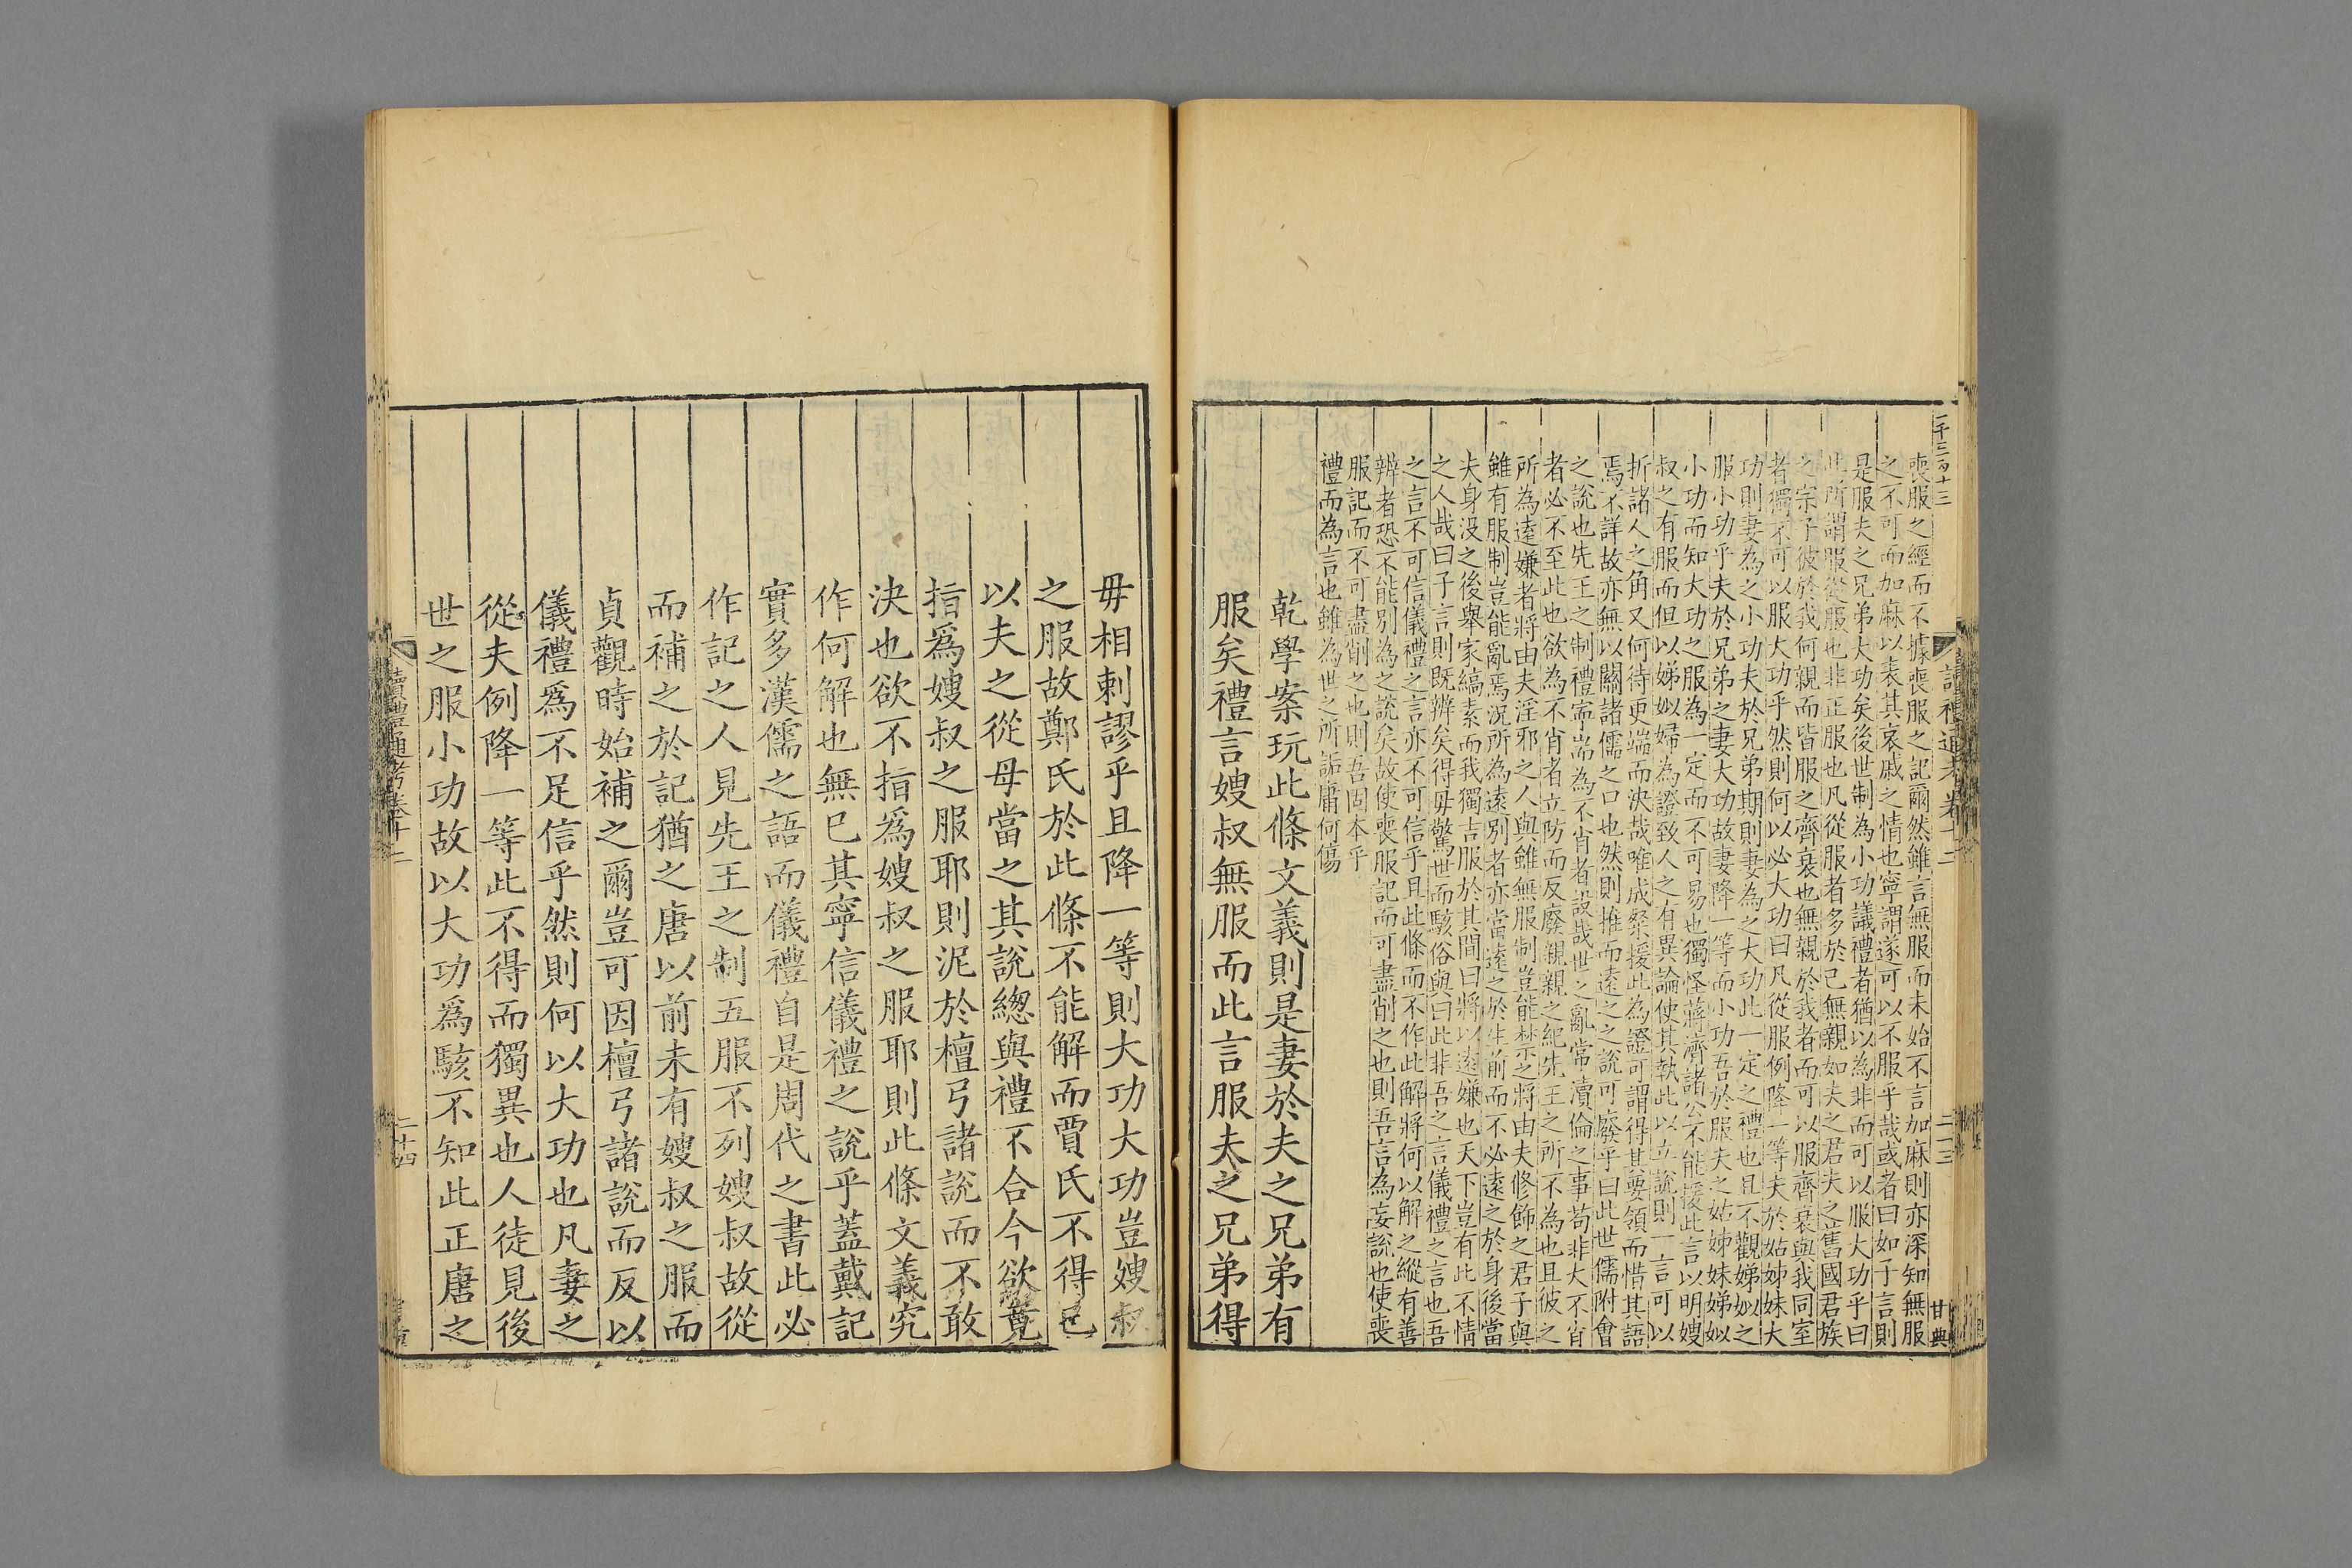 二千三百十三
讀禮通考卷十二
二十三
甘典
喪服之經而不據喪服之記爾然雖言無服而未始不言加麻則亦深知無服
之不可而加麻以表其哀戚之情也寧謂遂可以不服乎哉或者曰如子言則
是服夫之兄弟大功矣後世制為小功議禮者猶以為非而可以服大功乎曰
此所謂服從服也非正服也凡從服者多於己無親如夫之君夫之舊國君族
之宗子彼於我何親而皆服之齊衰也無親於我者而可以服齊衰與我同室
者獨不可以服大功乎然則何以必大功曰凡從服例降一等夫於姑姊妹大
功則妻為之小功夫於兄弟期則妻為之大功此一定之禮也且不觀娣姒之
服小功乎夫於兄弟之妻大功故妻降一等而小功吾於服夫之姑姊妹娣姒
小功而知大功之服為一定而不可易也獨怪蔣濟諸公不能援此言以明嫂
叔之有服而但以娣姒婦為證致人之有異論使其執此以立說則一言可以
折諸人之角又何待更端而決哉唯成粲援此為證可謂得其要領而惜其語
焉不詳故亦無以關諸儒之口也然則推而遠之之說可廢乎曰此世儒附會
之說也先王之制禮寧耑為不肖者設哉世之亂常瀆倫之事苟非大不肖
者必不至此也欲為不肖者立防而反廢親親之紀先王之所不為也且彼之
所為遠嫌者將由夫淫邪之人與雖無服制豈能禁之將由夫修飾之君子與
雖有服制豈能亂焉況所為遠別者亦當遠之於生前而不必遠之於身後當
夫身没之後舉家縞素而我獨吉服於其間曰將以遠嫌也天下豈有此不情
之人哉曰子言則既辨矣得毋驚世而駭俗與曰此非吾之言儀禮之言也吾
之言不可信儀禮之言亦不可信乎且此條而不作此解將何以解之縱有善
辨者恐不能別為之說矣故使喪服記而可盡削之也則吾言為妄說也使喪
服記而不可盡削之也則吾固本乎
禮而為言也雖為世之所詬庸何傷
乾學案玩此條文義則是妻於夫之兄弟有
服矣禮言嫂叔無服而此言服夫之兄弟得
毋相剌謬乎且降一等則大功大功豈嫂叔
之服故鄭氏於此條不能解而賈氏不得已
以夫之從母當之其說總與禮不合今欲竟
指爲嫂叔之服耶則泥於檀弓諸說而不敢
決也欲不指爲嫂叔之服耶則此條文義究
作何解也無已其寧信儀禮之說乎蓋戴記
實多漢儒之語而儀禮自是周代之書此必
作記之人見先王之制五服不列嫂叔故從
而補之於記猶之唐以前未有嫂叔之服而
貞觀時始補之爾豈可因檀弓諸說而反以
儀禮爲不足信乎然則何以大功也凡妻之
從夫例降一等此不得而獨異也人徒見後
世之服小功故以大功爲駭不知此正唐之
讀禮通考卷十二
二十四